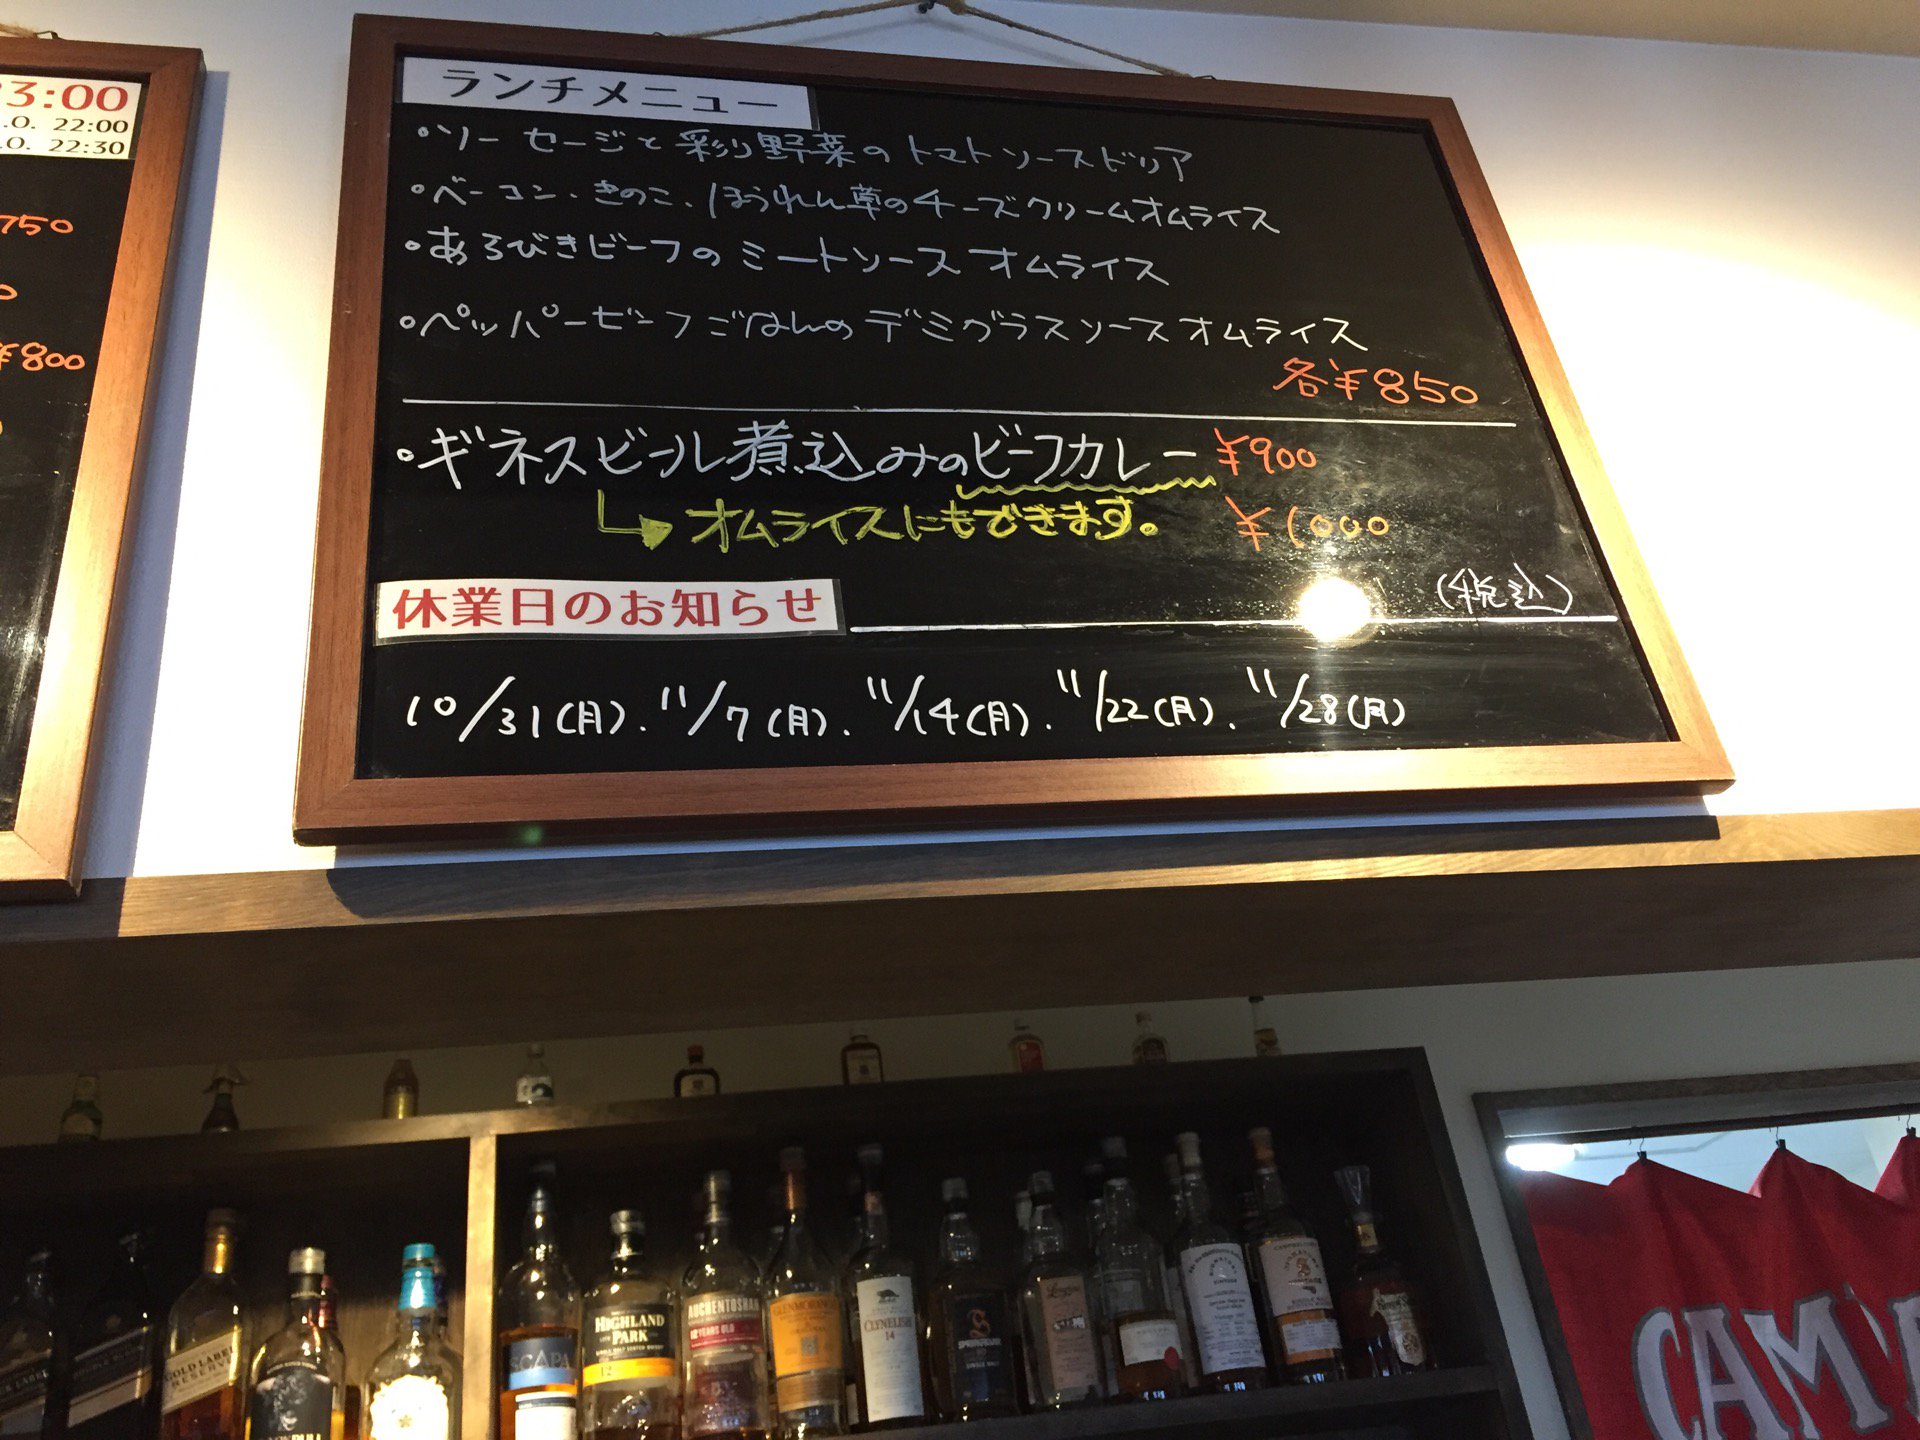 3:00
.O. 22:00
.O. 22:30
750
¥800
ランチメニュー
・ソーセージと彩り野菜のトマトソースドリア
・ベーコン、きのこ、ほうれん草のチーズクリームオムライス
・あらびきビーフのミートソースオムライス
・ペッパービーフごはんのデミグラスソースオムライス
各¥850
・ギネスビール煮込みのビーフカレー ¥900
オムライスにもできます。 ¥1000
(税込)
休業日のお知らせ
10/31(月). 11/7(月). 11/14(月). 11/22(月). 11/28(月)
GOLD LABEL
RESERVE
SCAPA
HIGHLAND
PARK
12
AUCHENTOSHAN
12 YEARS OLD
GLENMORANGIE
CLYNELISH
14
SIGNATORY
VINTAGE
CAM